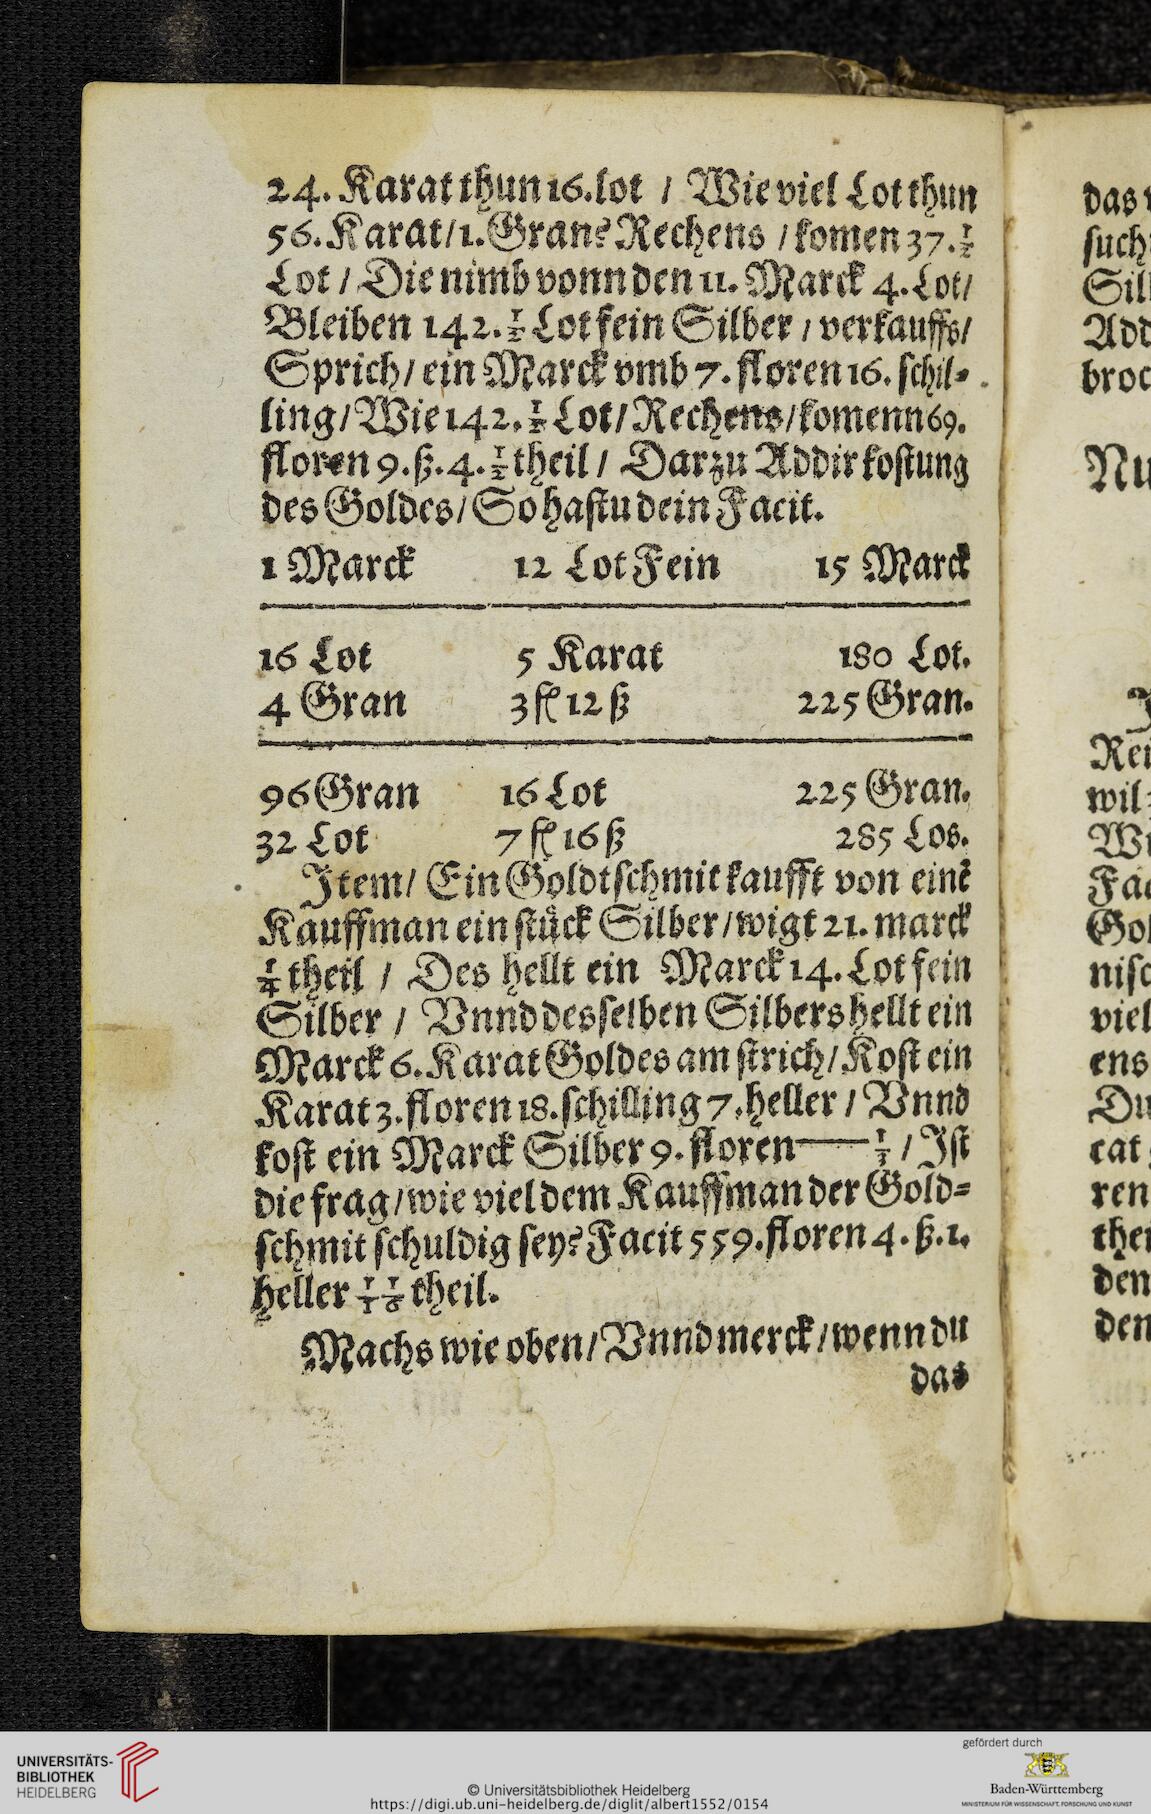 24. Karat thun 16. lot / Wie viel Lot thun
56. Karat / 1. Gran? Rechens / komen 37. 1/2
Lot / Die nimb vonn den 11. Marck 4. Lot /
Bleiben 142. 1/2 Lot fein Silber / verkauffs /
Sprich / ein Marck vmb 7. floren 16. schil⸗
ling / Wie 142. 1/2 Lot / Rechens / komenn 69.
floren 9. ß. 4. 1/2 theil / Darzu Addir kostung
des Goldes / So hastu dein Facit.
1 Marck 12 Lot Fein 15 Marck
16 Lot 5 Karat 180 Lot.
4 Gran 3 fl 12 ß 225 Gran.
96 Gran 16 Lot 225 Gran.
32 Lot 7 fl 16 ß 285 Los.
Item / Ein Goldtschmit kaufft von einē
Kauffman ein stück Silber / wigt 21. marck
1/4 theil / Des hellt ein Marck 14. Lot fein
Silber / Vnnd desselben Silbers hellt ein
Marck 6. Karat Goldes am strich / Kost ein
Karat 3. floren 18. schilling 7. heller / Vnnd
kost ein Marck Silber 9. floren — 1/5 / Ist
die frag / wie viel dem Kauffman der Gold⸗
schmit schuldig sey? Facit 559. floren 4. ß. 1.
heller 11/16 theil.
Machs wie oben / Vnnd merck / wenn du
das
das
such
Sil
Add
broc
Nu
Rei
wil
Wi
Fac
Gol
nisc
viel
ens
Du
cat
ren
thei
den
den
UNIVERSITÄTS-
BIBLIOTHEK
HEIDELBERG
© Universitätsbibliothek Heidelberg
https://digi.ub.uni-heidelberg.de/diglit/albert1552/0154
gefördert durch
Baden-Württemberg
MINISTERIUM FÜR WISSENSCHAFT, FORSCHUNG UND KUNST